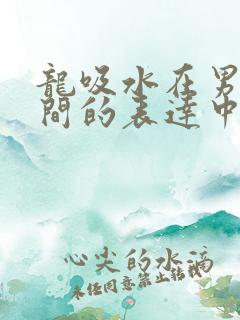 龍吸水在男
間的表達中
心尖的水滴
未经同意禁止转载